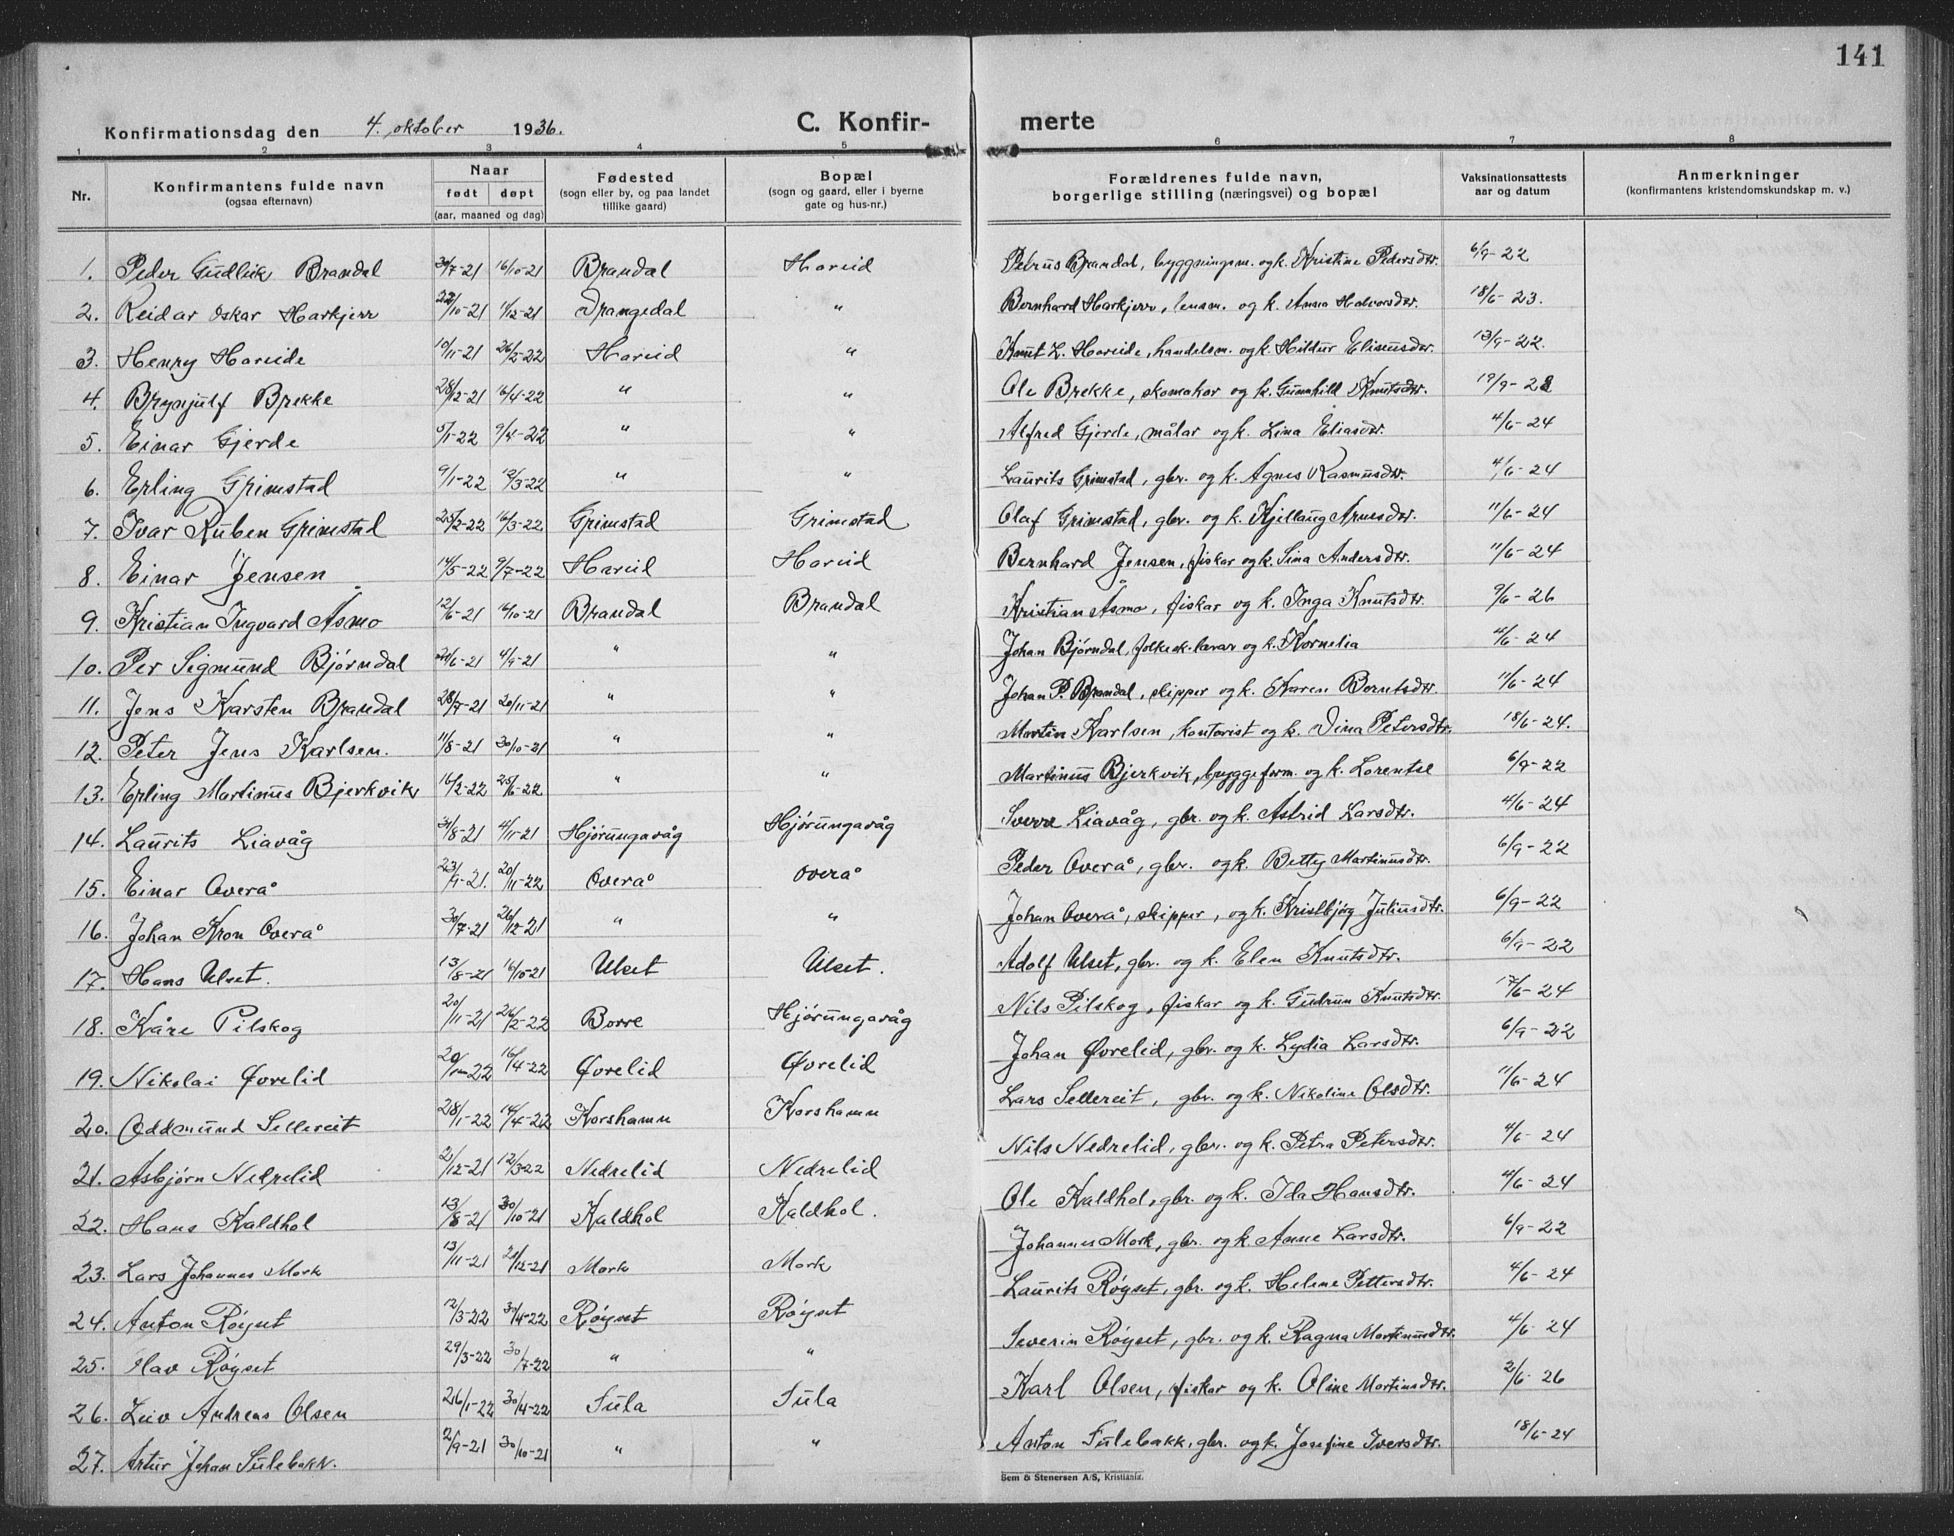 141
Konfirmationsdag den 4. oktober 1936. C. Konfir- merte
1 2 3 4 5 6 7 8
Nr. Konfirmantens fulde navn (ogsaa efternavn) Naar født døpt (aar, maaned og dag) Fødested (sogn eller by, og paa landet tillike gaard) Bopæl (sogn og gaard, eller i byerne gate og hus-nr.) Forældrenes fulde navn, borgerlige stilling (næringsvei) og bopæl Vaksinationsattests aar og datum Anmerkninger (konfirmantens kristendomskundskap m. v.)
1. Peder Gudleik Brandal 30/7-21 16/10-21 Brandal Hareid Petrus Brandal, byggningsm. og k. Kristine Pedersdtr. 6/9-22
2. Reidar Oskar Harkjerr 22/10-21 11/12-21 Drangedal " Bernhard Harkjerr, lensm. og k. Anna Halvorsdtr. 18/6-23.
3. Henry Hareide 10/11-21 26/2-22 Hareid " Knut L. Hareide, handelsm. og k. Hildur Eliseusdtr. 13/9-22.
4. Brynjulf Brekke 28/12-21 16/4-22 " " Ole Brekke, skomakar og k. Gunnhild Knutsdtr. 19/9-28
5. Einar Gjerde 5/1-22 9/4-22 " " Alfred Gjerde, målar og k. Lina Eliasdtr. 4/6-24
6. Erling Grimstad 9/1-22 12/3-22 " " Laurits Grimstad, gbr. og k. Agnes Rasmusdtr. 4/6-24
7. Ivar Ruben Grimstad 25/2-22 16/3-22 Grimstad Grimstad Olaf Grimstad, gbr. og k. Kjellaug Arnesdtr. 11/6-24
8. Einar Jensen 14/5-22 9/7-22 Hareid Hareid Bernhard Jensen, fiskar og k. Sina Andersdtr. 11/6-24
9. Kristian Ingvard Åsmo 12/6-21 16/10-21 Brandal Brandal Kristian Åsmo, fiskar og k. Inga Knutsdtr. 9/6-26
10. Per Sigmund Bjørndal 21/6-21 4/9-21 " " Johan Bjørndal, folkesk.lærar og k. Kornelia 4/6-24
11. Jens Karsten Brandal 28/7-21 20/11-21 " " Johan P. Brandal, skipper og k. Karen Berntsdtr. 11/6-24
12. Peter Jens Karlsen. 11/8-21 30/10-21 " " Martin Karlsen, kontorist og k. Dina Petersdtr. 18/6-24.
13. Erling Martinus Bjerkvik 16/2-22 25/6-22 " " Martinus Bjerkvik, byggeform. og k. Lorentse 6/9-22
14. Laurits Liavåg 31/8-21 4/11-21 Hjørungavåg Hjørungavåg Sverre Liavåg, gbr. og k. Astrid Larsdtr. 4/6-24
15. Einar Overå 23/9-21. 20/11-22 Overå Overå Peder Overå, gbr. og k. Betty Martinusdtr. 6/9-22
16. Johan Kron Overå 30/7-21 26/12-21 " " Johan Overå, skipper, og k. Kristbjørg Juliusdtr. 6/9-22
17. Hans Ulset. 13/8-21 16/10-21 Ulset Ulset. Adolf Ulset, gbr. og k. Elen Knutsdtr. 6/9-22
18. Kåre Pilskog 20/11-21 26/2-22 Borre Hjørungavåg Nils Pilskog, fiskar og k. Gudrun Knutsdtr. 17/6-24
19. Nikolai Øvrelid 16/4-22 Øvrelid Øvrelid Johan Øvrelid, gbr. og k. Lydia Larsdtr. 6/9-22
20. Oddmund Sellereit 28/1-22 14/4-22 Korshamn Korshamn Lars Sellereit, gbr. og k. Nikoline Olsdtr. 11/6-24
21. Asbjørn Nedrelid 2/12-21 12/3-22 Nedrelid Nedrelid Nils Nedrelid, gbr. og k. Petra Petersdtr. 4/6-24
22. Hans Kaldhol 13/8-21 30/10-21 Kaldhol Kaldhol. Ole Kaldhol, gbr. og k. Ida Hansdtr. 4/6-24
23. Lars Johannes Mork 13/11-21 21/12-21 Mork Mork Johannes Mork, gbr. og k. Anne Larsdtr. 6/9-22
24. Anton Røyset 12/3-22 30/4-22 Røyset Røyset Laurits Røyset, gbr. og k. Helene Pettersdtr. 4/6-24
25. Olav Røyset 29/3-22 30/7-22 " " Severin Røyset, gbr. og k. Ragna Martinusdtr. 4/6-24
26. Leiv Andreas Olsen 26/1-22 30/4-22 Sula Sula Karl Olsen, fiskar og k. Oline Martinsdtr. 2/6-26
27. Artur Johan Sulebakk. 2/9-21 30/10-21 " " Anton Sulebakk, gbr. og k. Josefine Iversdtr. 18/6-24
Sem & Stenersen A/S, Kristiania.